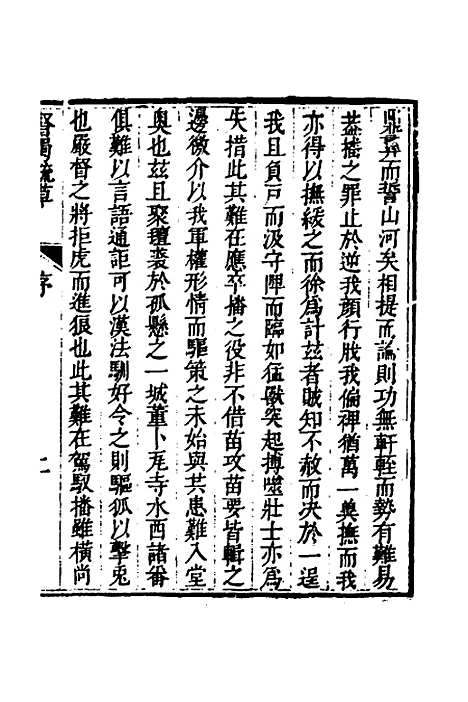 鼎彝而誓山河矣相提而論則功無軒輊而勢有難易
蓋播之罪止於逆我顏行戕我偏裨猶萬一奠撫而我
亦得以撫緩之而徐為計茲者賊知不赦而决於一逞
我且負戸而汲守陴而臨如猛獸突起搏噬壯士亦為
失措此其難在應卒播之役非不借苗攻苗要皆輯之
邊徼介以我軍權形情而驅策之未始與共患難入堂
奥也茲且聚氊裘於孤懸之一城董卜尨寺水西諸畨
俱難以言語通詎可以漢法馴好令之則驅狐以擊兎
也嚴督之將拒虎而進狼也此其難在駕馭播雖橫尚
督蜀疏草
序
二